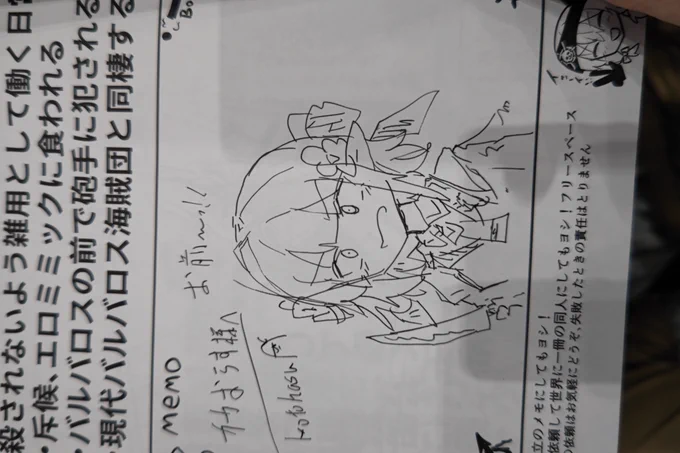 殺されないよう雑用として働く日常
・斥候、エロミミックに食われる
・バルバロスの前で砲手に犯される
・現代バルバロス海賊団と同棲する
memo
お前ーっ!!
立のメモにしてもヨシ!
依頼して世界に一冊の同人にしてもヨシ!フリースペース
の依頼はお気軽にどうぞ、失敗したときの責任はとりません